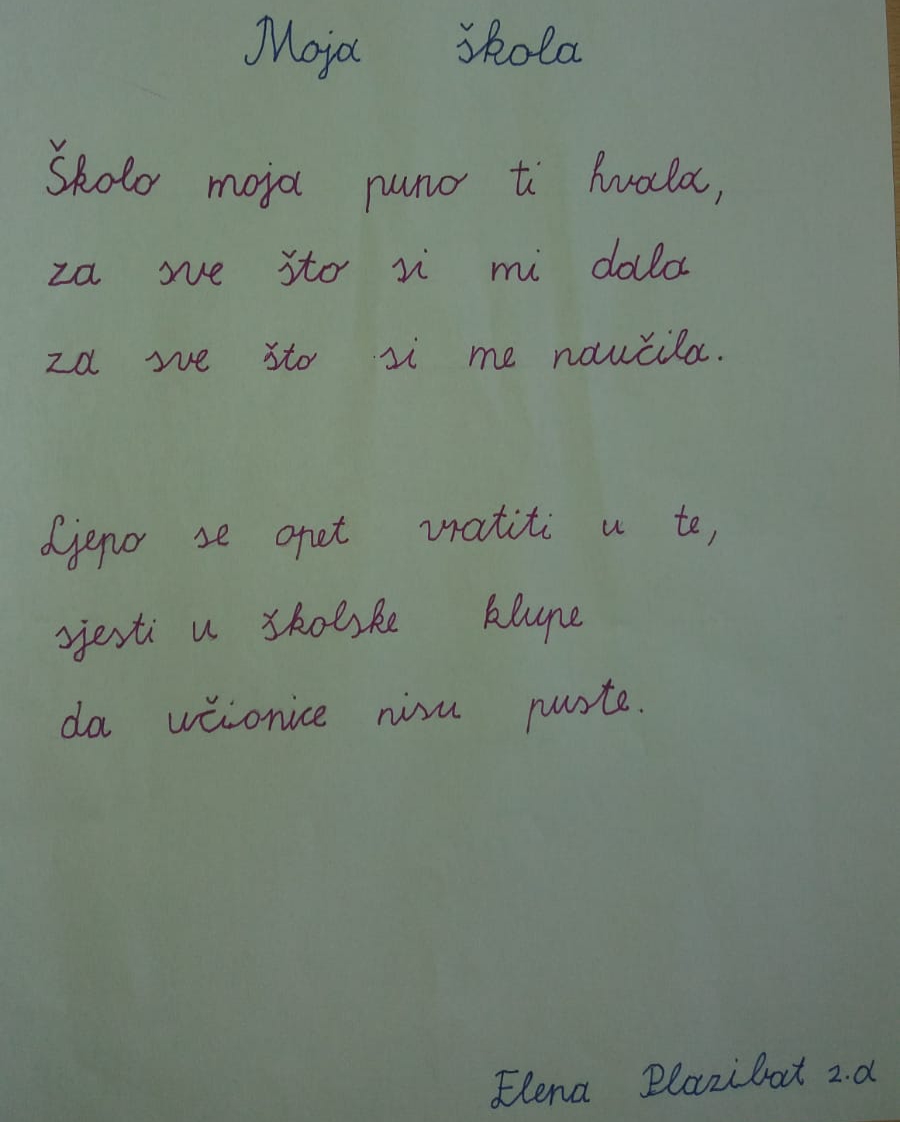 Moja škola
Školo moja puno ti hvala,
za sve što si mi dala
za sve što si me naučila.
Ljepo se opet vratiti u te,
sjesti u školske klupe
da učionice nisu puste.
Elena Plazibat 2.a